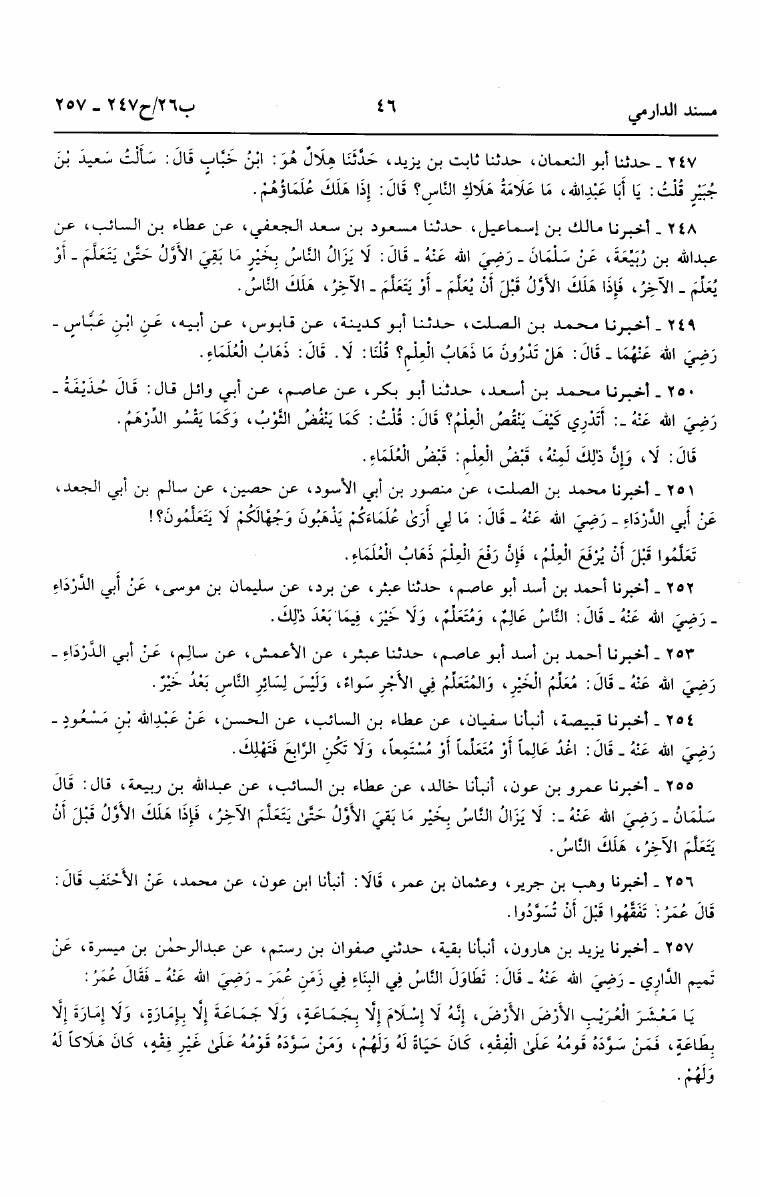 مسند الدارمي ٤٦ ب٢٦/ح٢٤٧ - ٢٥٧
٢٤٧ - حدثنا أبو النعمان، حدثنا ثابت بن يزيد، حَدَّثَنَا هِلَالٌ هُوَ: ابْنُ خَبَّابٍ قَالَ: سَأَلْتُ سَعِيدَ بْنَ
جُبَيْرٍ قُلْتُ: يَا أَبَا عَبْدِالله، مَا عَلَامَةُ هَلَاكِ النَّاسِ؟ قَالَ: إِذَا هَلَكَ عُلَمَاؤُهُمْ.
٢٤٨ - أخبرنا مالك بن إسماعيل، حدثنا مسعود بن سعد الجعفي، عن عطاء بن السائب، عن
عبدالله بن رُبَيِّعَةَ، عَنْ سَلْمَانَ - رَضِيَ الله عَنْهُ - قَالَ: لَا يَزَالُ النَّاسُ بِخَيْرٍ مَا بَقِيَ الأَوَّلُ حَتَّىٰ يَتَعَلَّمَ - أَوْ
يُعَلِّمَ - الآخِرُ، فَإِذَا هَلَكَ الأَوَّلُ قَبْلَ أَنْ يُعَلِّمَ - أَوْ يَتَعَلَّمَ - الآخِرُ، هَلَكَ النَّاسُ.
٢٤٩ - أخبرنا محمد بن الصلت، حدثنا أبو كدينة، عن قابوس، عن أبيه، عَنِ ابْنِ عَبَّاسٍ -
رَضِيَ الله عَنْهُمَا - قَالَ: هَلْ تَدْرُونَ مَا ذَهَابُ الْعِلْمِ؟ قُلْنَا: لَا. قَالَ: ذَهَابُ الْعُلَمَاءِ.
٢٥٠ - أخبرنا محمد بن أسعد، حدثنا أبو بكر، عن عاصم، عن أبي وائل قال: قَالَ حُذَيْفَةُ -
رَضِيَ الله عَنْهُ -: أَتَدْرِي كَيْفَ يَنْقُصُ الْعِلْمُ؟ قَالَ: قُلْتُ: كَمَا يَنْفُضُ الثَّوْبُ، وَكَمَا يَقْسُو الدِّرْهَمُ.
قَالَ: لَا، وَإِنَّ ذٰلِكَ لَمِنْهُ، قَبْضُ الْعِلْمِ: قَبْضُ الْعُلَمَاءِ.
٢٥١ - أخبرنا محمد بن الصلت، عن منصور بن أبي الأسود، عن حصين، عن سالم بن أبي الجعد،
عَنْ أَبِي الدَّرْدَاءِ - رَضِيَ الله عَنْهُ - قَالَ: مَا لِي أَرَىٰ عُلَمَاءَكُمْ يَذْهَبُونَ وَجُهَّالَكُمْ لَا يَتَعَلَّمُونَ؟!
تَعَلَّمُوا قَبْلَ أَنْ يُرْفَعَ الْعِلْمُ، فَإِنَّ رَفْعَ الْعِلْمَ ذَهَابُ الْعُلَمَاءِ.
٢٥٢ - أخبرنا أحمد بن أسد أبو عاصم، حدثنا عبثر، عن برد، عن سليمان بن موسى، عَنْ أَبِي الدَّرْدَاءِ
- رَضِيَ الله عَنْهُ - قَالَ: النَّاسُ عَالِمٌ، وَمُتَعَلِّمٌ، وَلَا خَيْرَ، فِيمَا بَعْدَ ذٰلِكَ.
٢٥٣ - أخبرنا أحمد بن أسد أبو عاصم، حدثنا عبثر، عن الأعمش، عن سالم، عَنْ أَبِي الدَّرْدَاءِ -
رَضِيَ الله عَنْهُ - قَالَ: مُعَلِّمُ الْخَيْرِ، وَالمُتَعَلِّمُ فِي الأَجْرِ سَوَاءٌ، وَلَيْسَ لِسَائِرِ النَّاسِ بَعْدُ خَيْرٌ.
٢٥٤ - أخبرنا قبيصة، أنبأنا سفيان، عن عطاء بن السائب، عن الحسن، عَنْ عَبْدِالله بْنِ مَسْعُودٍ -
رَضِيَ الله عَنْهُ - قَالَ: اغْدُ عَالِماً أَوْ مُتَعَلِّماً أَوْ مُسْتَمِعاً، وَلَا تَكُنِ الرَّابِعَ فَتَهْلِكَ.
٢٥٥ - أخبرنا عمرو بن عون، أنبأنا خالد، عن عطاء بن السائب، عن عبدالله بن ربيعة، قال: قَالَ
سَلْمَانُ - رَضِيَ الله عَنْهُ -: لَا يَزَالُ النَّاسُ بِخَيْرٍ مَا بَقيَ الأَوَّلُ حَتَّىٰ يَتَعَلَّمَ الآخِرُ، فَإِذَا هَلَكَ الأَوَّلُ قَبْلَ أَنْ
يَتَعَلَّمَ الآخِرُ، هَلَكَ النَّاسُ.
٢٥٦ - أخبرنا وهب بن جرير، وعثمان بن عمر، قَالَا: أنبأنا ابن عون، عن محمد، عَنْ الأَحْنَفِ قَالَ:
قَالَ عُمَرُ: تَفَقَّهُوا قَبْلَ أَنْ تُسَوَّدُوا.
٢٥٧ - أخبرنا يزيد بن هارون، أنبأنا بقية، حدثني صفوان بن رستم، عن عبدالرحمٰن بن ميسرة، عَنْ
تَمِيمِ الدَّارِي - رَضِيَ الله عَنْهُ - قَالَ: تَطَاوَلَ النَّاسُ فِي الْبِنَاءِ فِي زَمَنِ عُمَرَ - رَضِيَ الله عَنْهُ - فَقَالَ عُمَرُ:
يَا مَعْشَرَ الْعُرَيْبِ الأَرْضَ الأَرْضَ، إِنَّهُ لَا إِسْلَامَ إِلَّا بِجَمَاعَةٍ، وَلَا جَمَاعَةَ إِلَّا بِإِمَارَةٍ، وَلَا إِمَارَةَ إِلَّا
بِطَاعَةٍ، فَمَنْ سَوَّدَهُ قَومُهُ عَلَىٰ الْفِقْهِ، كَانَ حَيَاةً لَهُ وَلَهُمْ، وَمَنْ سَوَّدَهُ قَوْمُهُ عَلَىٰ غَيْرِ فِقْهٍ، كَانَ هَلَاكاً لَهُ
وَلَهُمْ.